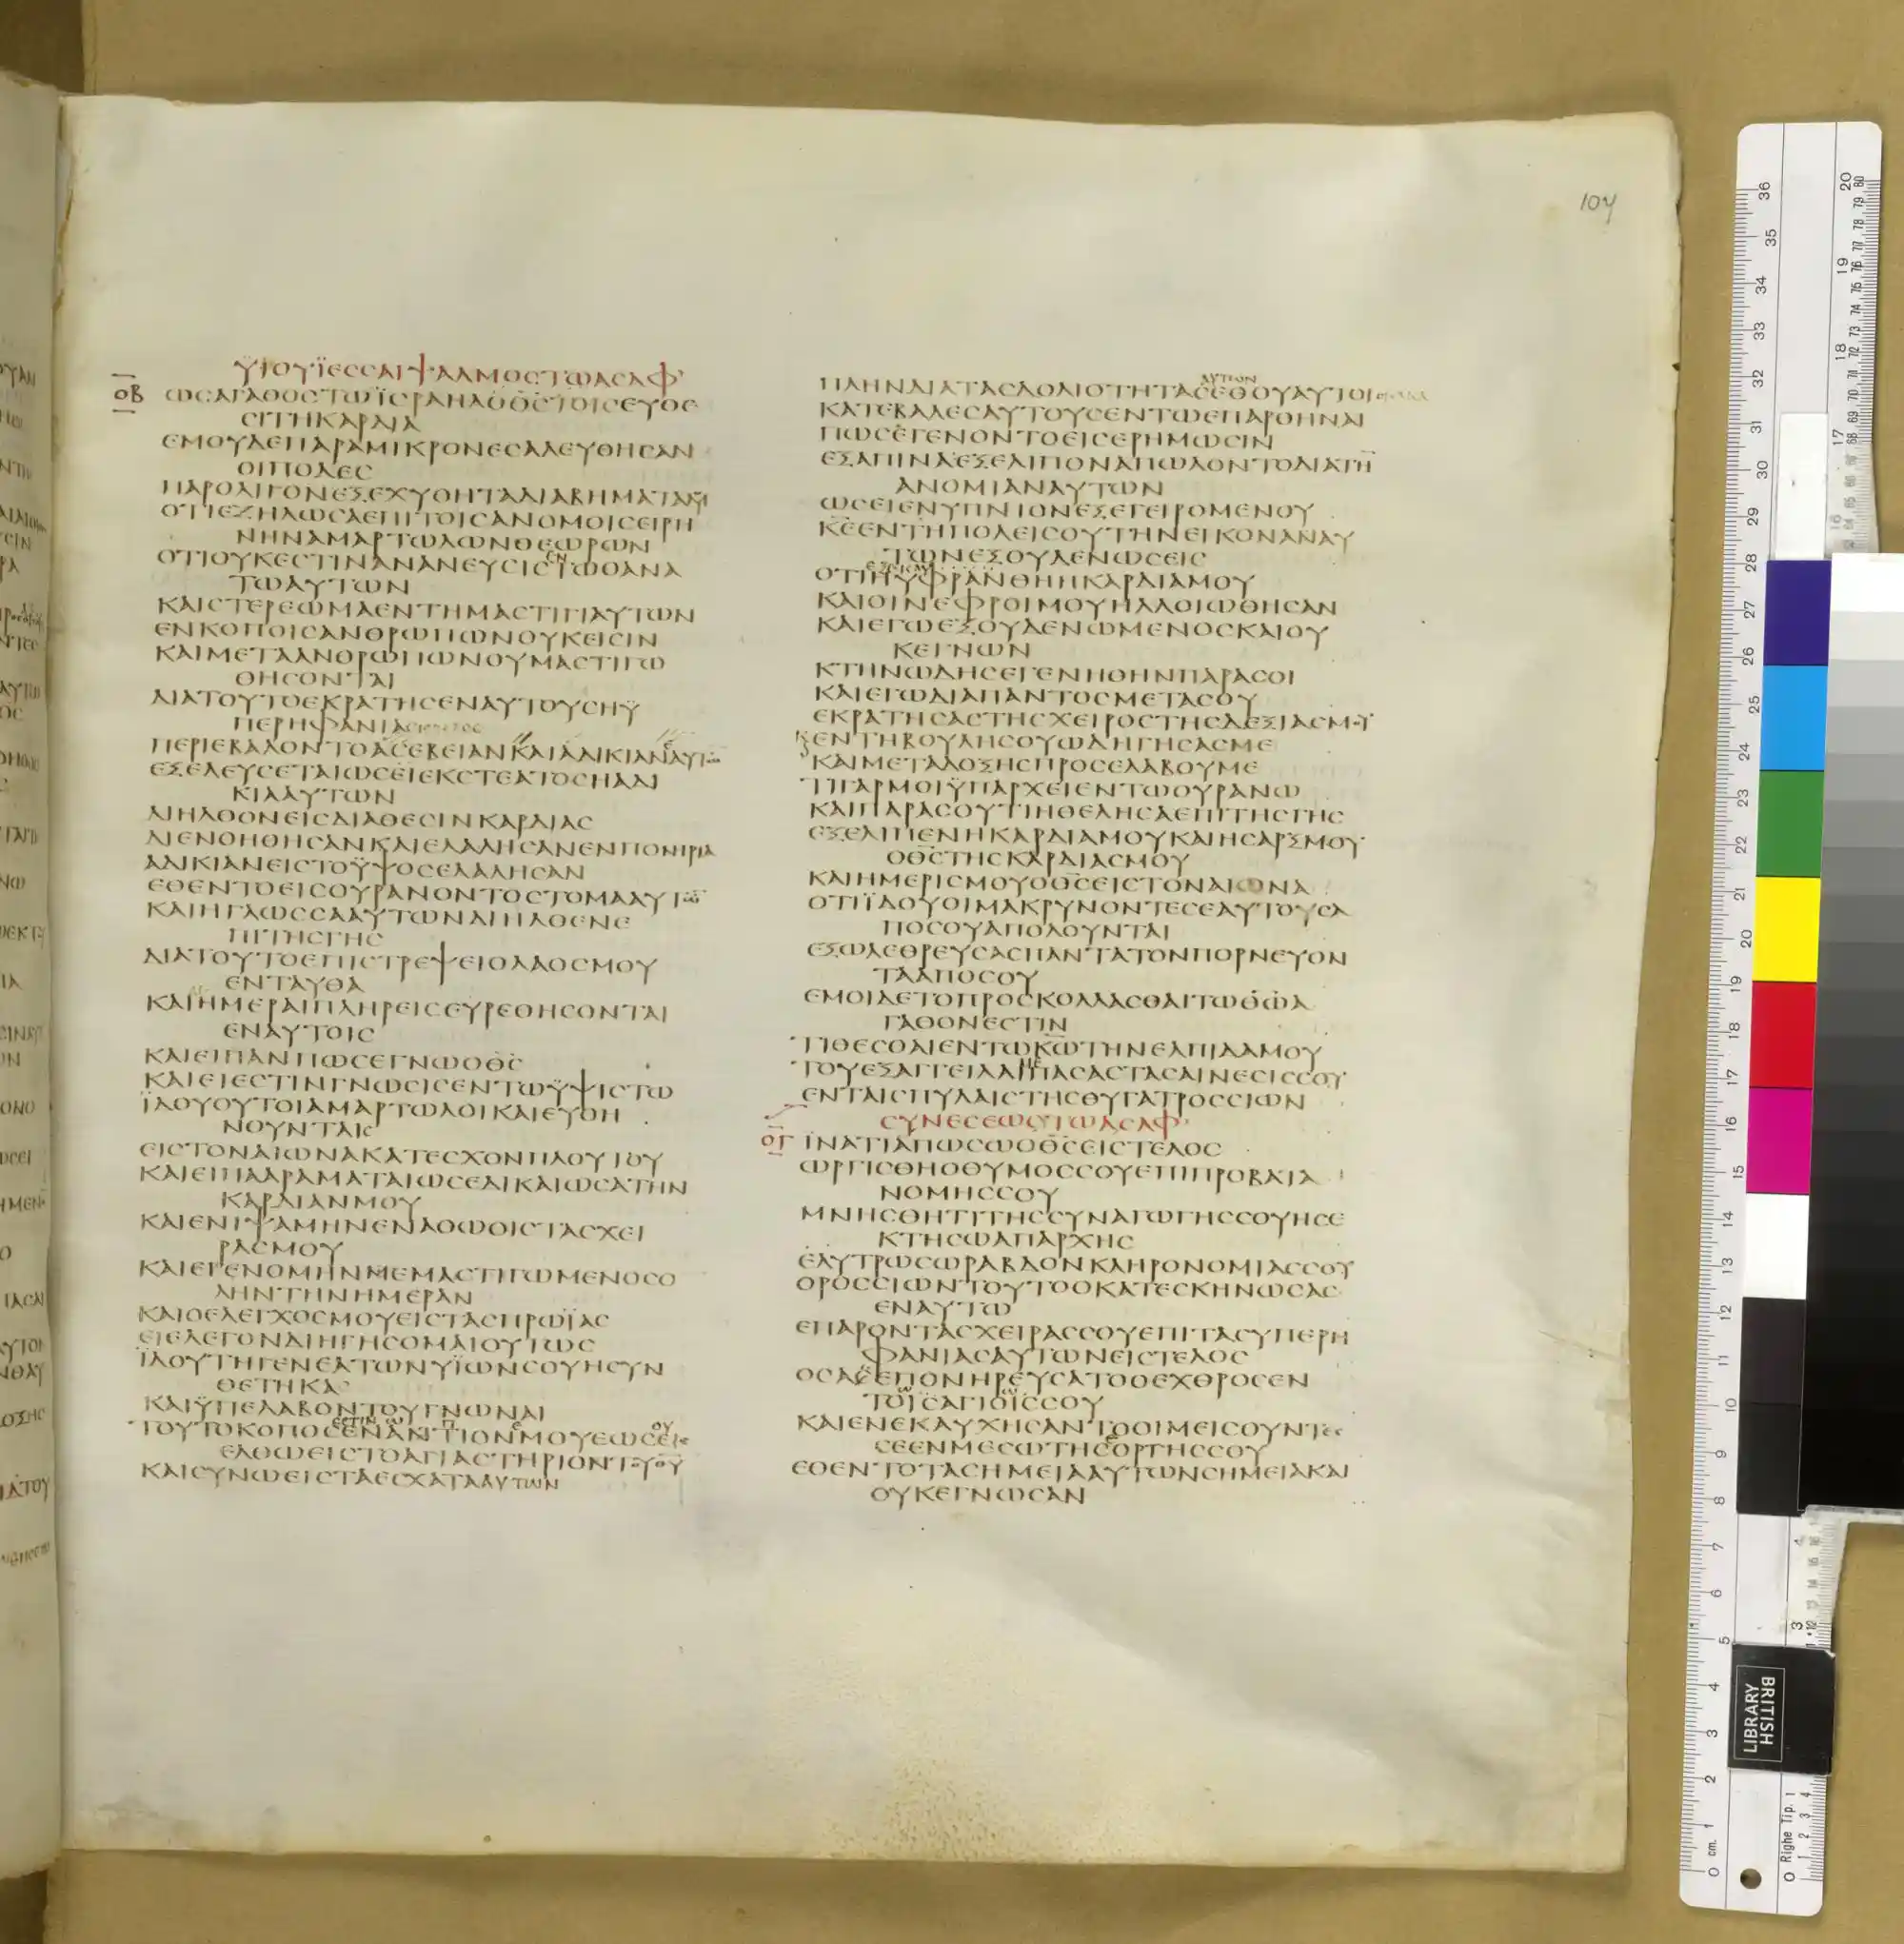 107
ΥΙΟΥΪΕCCΑΙΨΑΛΜΟCΤΩΑCΑΦ
ΟΒ ΩCΑΓΑΘΟCΤΩΙCΡΑΗΛΟΘCΤΟΙCΕΥΘΕ
CΙΤΗΚΑΡΔΙΑ
ΕΜΟΥΔΕΠΑΡΑΜΙΚΡΟΝΕCΑΛΕΥΘΗCΑΝ
ΟΙΠΟΔΕC
ΠΑΡΟΛΙΓΟΝΕΞΕΧΥΘΗΤΑΔΙΑΒΗΜΑΤΑΜΟΥ
ΟΤΙΕΖΗΛΩCΑΕΠΙΤΟΙCΑΝΟΜΟΙCΕΙΡΗ
ΝΗΝΑΜΑΡΤΩΛΩΝΘΕΩΡΩΝ
ΟΤΙΟΥΚΕCΤΙΝΑΝΑΝΕΥCΙCΕΝΤΩΘΑΝΑ
ΤΩΑΥΤΩΝ
ΚΑΙCΤΕΡΕΩΜΑΕΝΤΗΜΑCΤΙΓΙΑΥΤΩΝ
ΕΝΚΟΠΟΙCΑΝΘΡΩΠΩΝΟΥΚΕΙCΙΝ
ΚΑΙΜΕΤΑΑΝΘΡΩΠΩΝΟΥΜΑCΤΙΓΩ
ΘΗCΟΝΤΑΙ
ΔΙΑΤΟΥΤΟΕΚΡΑΤΗCΕΝΑΥΤΟΥCΗΫ
ΠΕΡΗΦΑΝΙΑ
ΠΕΡΙΕΒΑΛΟΝΤΟΑCΕΒΕΙΑΝΚΑΙΑΔΙΚΙΑΝΑΥΤΩ
ΕΞΕΛΕΥCΕΤΑΙΩCΕΙΕΚCΤΕΑΤΟCΗΑΔΙ
ΚΙΑΑΥΤΩΝ
ΔΙΗΛΘΟΝΕΙCΔΙΑΘΕCΙΝΚΑΡΔΙΑC
ΔΙΕΝΟΗΘΗCΑΝΚΑΙΕΛΑΛΗCΑΝΕΝΠΟΝΗΡΙΑ
ΑΔΙΚΙΑΝΕΙCΤΟΫΨΟCΕΛΑΛΗCΑΝ
ΕΘΕΝΤΟΕΙCΟΥΡΑΝΟΝΤΟCΤΟΜΑΑΥΤΩ
ΚΑΙΗΓΛΩCCΑΑΥΤΩΝΔΙΗΛΘΕΝΕ
ΠΙΤΗCΓΗC
ΔΙΑΤΟΥΤΟΕΠΙCΤΡΕΨΕΙΟΛΑΟCΜΟΥ
ΕΝΤΑΥΘΑ
ΚΑΙΗΜΕΡΑΙΠΛΗΡΕΙCΕΥΡΕΘΗCΟΝΤΑΙ
ΕΝΑΥΤΟΙC
ΚΑΙΕΙΠΑΝΠΩCΕΓΝΩΟΘC
ΚΑΙΕΙΕCΤΙΝΓΝΩCΙCΕΝΤΩΫΨΙCΤΩ
ΪΔΟΥΟΥΤΟΙΑΜΑΡΤΩΛΟΙΚΑΙΕΥΘΗ
ΝΟΥΝΤΑΙC
ΕΙCΤΟΝΑΙΩΝΑΚΑΤΕCΧΟΝΠΛΟΥΤΟΥ
ΚΑΙΕΙΠΑΑΡΑΜΑΤΑΙΩCΕΔΙΚΑΙΩCΑΤΗΝ
ΚΑΡΔΙΑΝΜΟΥ
ΚΑΙΕΝΙΨΑΜΗΝΕΝΑΘΩΟΙCΤΑCΧΕΙ
ΡΑCΜΟΥ
ΚΑΙΕΓΕΝΟΜΗΝΜΕΜΑCΤΙΓΩΜΕΝΟCΟ
ΛΗΝΤΗΝΗΜΕΡΑΝ
ΚΑΙΟΕΛΕΓΧΟCΜΟΥΕΙCΤΑCΠΡΩΪΑC
ΕΙΕΛΕΓΟΝΔΙΗΓΗCΟΜΑΙΟΥΤΩC
ΪΔΟΥΤΗΓΕΝΕΑΤΩΝΥΪΩΝCΟΥΗCΥΝ
ΘΕΤΗΚΑ
ΚΑΙΫΠΕΛΑΒΟΝΤΟΥΓΝΩΝΑΙ
ΤΟΥΤΟΚΟΠΟCΕΝΑΝΤΙΟΝΜΟΥΕΩCΕΙC
ΕΛΘΩΕΙCΤΟΑΓΙΑCΤΗΡΙΟΝΤΟΥΘΥ
ΚΑΙCΥΝΩΕΙCΤΑΕCΧΑΤΑΑΥΤΩΝ
ΠΛΗΝΔΙΑΤΑCΔΟΛΙΟΤΗΤΑCΕΘΟΥΑΥΤΟΙ
ΚΑΤΕΒΑΛΕCΑΥΤΟΥCΕΝΤΩΕΠΑΡΘΗΝΑΙ
ΠΩCΕΓΕΝΟΝΤΟΕΙCΕΡΗΜΩCΙΝ
ΕΞΑΠΙΝΑΕΞΕΛΙΠΟΝΑΠΩΛΟΝΤΟΔΙΑΤΗ
ΑΝΟΜΙΑΝΑΥΤΩΝ
ΩCΕΙΕΝΥΠΝΙΟΝΕΞΕΓΕΙΡΟΜΕΝΟΥ
ΚΕΕΝΤΗΠΟΛΕΙCΟΥΤΗΝΕΙΚΟΝΑΝΑΥ
ΤΩΝΕΞΟΥΔΕΝΩCΕΙC
ΟΤΙΗΥΦΡΑΝΘΗΗΚΑΡΔΙΑΜΟΥ
ΚΑΙΟΙΝΕΦΡΟΙΜΟΥΗΛΛΟΙΩΘΗCΑΝ
ΚΑΙΕΓΩΕΞΟΥΔΕΝΩΜΕΝΟCΚΑΙΟΥ
ΚΕΓΝΩΝ
ΚΤΗΝΩΔΗCΕΓΕΝΗΘΗΝΠΑΡΑCΟΙ
ΚΑΙΕΓΩΔΙΑΠΑΝΤΟCΜΕΤΑCΟΥ
ΕΚΡΑΤΗCΑCΤΗCΧΕΙΡΟCΤΗCΔΕΞΙΑCΜΟΥ
ΕΝΤΗΒΟΥΛΗCΟΥΩΔΗΓΗCΑCΜΕ
ΚΑΙΜΕΤΑΔΟΞΗCΠΡΟCΕΛΑΒΟΥΜΕ
ΤΙΓΑΡΜΟΙΫΠΑΡΧΕΙΕΝΤΩΟΥΡΑΝΩ
ΚΑΙΠΑΡΑCΟΥΤΙΗΘΕΛΗCΑΕΠΙΤΗCΓΗC
ΕΞΕΛΙΠΕΝΗΚΑΡΔΙΑΜΟΥΚΑΙΗCΑΡΞΜΟΥ
ΟΘCΤΗCΚΑΡΔΙΑCΜΟΥ
ΚΑΙΗΜΕΡΙCΜΟΥΟΘCΕΙCΤΟΝΑΙΩΝΑ
ΟΤΙΪΔΟΥΟΙΜΑΚΡΥΝΟΝΤΕCΕΑΥΤΟΥCΑ
ΠΟCΟΥΑΠΟΛΟΥΝΤΑΙ
ΕΞΩΛΕΘΡΕΥCΑCΠΑΝΤΑΤΟΝΠΟΡΝΕΥΟΝ
ΤΑΑΠΟCΟΥ
ΕΜΟΙΔΕΤΟΠΡΟCΚΟΛΛΑCΘΑΙΤΩΘΩΑ
ΓΑΘΟΝΕCΤΙΝ
ΤΙΘΕCΘΑΙΕΝΤΩΚΩΤΗΝΕΛΠΙΔΑΜΟΥ
ΤΟΥΕΞΑΓΓΕΙΛΑΙΠΑCΑCΤΑCΑΙΝΕCΙCCΟΥ
ΕΝΤΑΙCΠΥΛΑΙCΤΗCΘΥΓΑΤΡΟCCΙΩΝ
CΥΝΕCΕΩCΤΩΑCΑΦ
ΟΓ ΪΝΑΤΙΑΠΩCΩΟΘCΕΙCΤΕΛΟC
ΩΡΓΙCΘΗΟΘΥΜΟCCΟΥΕΠΙΠΡΟΒΑΤΑ
ΝΟΜΗCCΟΥ
ΜΝΗCΘΗΤΙΤΗCCΥΝΑΓΩΓΗCCΟΥΗCΕ
ΚΤΗCΩΑΠΑΡΧΗC
ΕΛΥΤΡΩCΩΡΑΒΔΟΝΚΛΗΡΟΝΟΜΙΑCCΟΥ
ΟΡΟCCΙΩΝΤΟΥΤΟΟΚΑΤΕCΚΗΝΩCΑC
ΕΝΑΥΤΩ
ΕΠΑΡΟΝΤΑCΧΕΙΡΑCCΟΥΕΠΙΤΑCΥΠΕΡΗ
ΦΑΝΙΑCΑΥΤΩΝΕΙCΤΕΛΟC
ΟCΑΕΠΟΝΗΡΕΥCΑΤΟΟΕΧΘΡΟCΕΝ
ΤΟΙCΑΓΙΟΙCCΟΥ
ΚΑΙΕΝΕΚΑΥΧΗCΑΝΤΟΟΙΜΕΙCΟΥΝΤΕC
CΕΕΝΜΕCΩΤΗCΕΟΡΤΗCCΟΥ
ΕΘΕΝΤΟΤΑCΗΜΕΙΑΑΥΤΩΝCΗΜΕΙΑΚΑΙ
ΟΥΚΕΓΝΩCΑΝ
BRITISH
LIBRARY